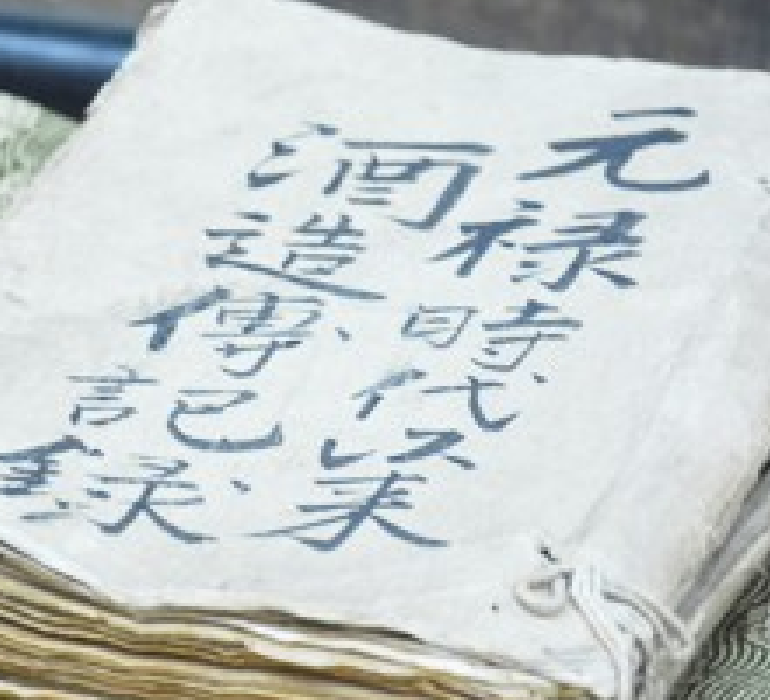 元禄時代
酒造傳記録